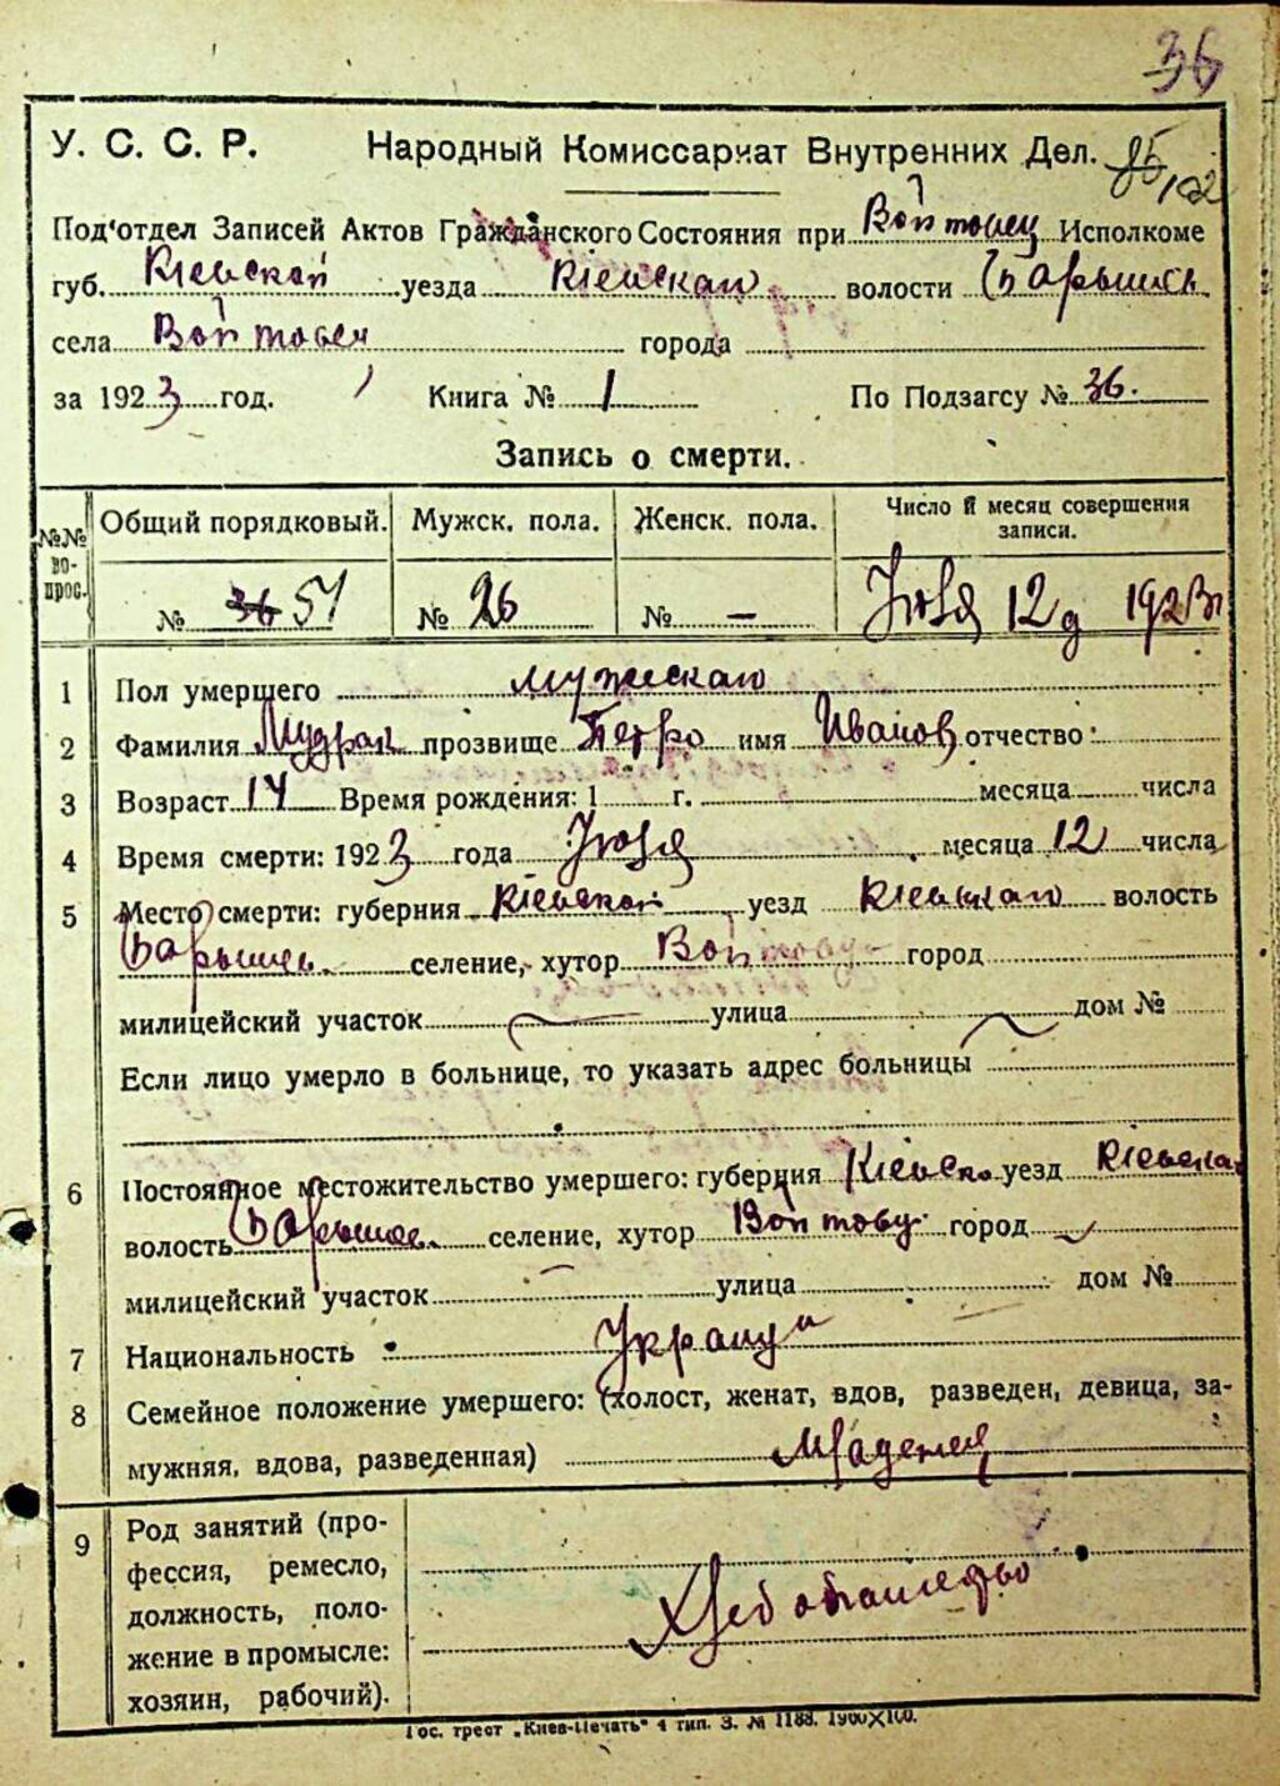 36
У. С. С. Р. Народный Комиссариат Внутренних Дел. 85/102
Под'отдел Записей Актов Гражданского Состояния при Войтовец Исполкоме
губ. Кіевской уезда Кіевскаго волости Барышев.
села Войтовец города
за 1923 год. Книга № 1 По Подзагсу № 36.
Запись о смерти.
№№ вопрос. Общий порядковый. Мужск. пола. Женск. пола. Число и месяц совершения записи.
№ 36 51 № 26 № — Июля 12 д 1923 г
1 Пол умершего мужескаго
2 Фамилия Мудрак прозвище Петро имя Иванов отчество
3 Возраст 14 Время рождения: 1 г. месяца числа
4 Время смерти: 1923 года Июля месяца 12 числа
5 Место смерти: губерния Кіевской уезд Кіевскаго волость
Барышев. селение, хутор Войтовц город
милицейский участок улица дом №
Если лицо умерло в больнице, то указать адрес больницы
6 Постоянное местожительство умершего: губерния Кіевско уезд Кіевска
волость Барышев. селение, хутор Войтовц город
милицейский участок улица дом №
7 Национальность
8 Семейное положение умершего: (холост, женат, вдов, разведен, девица, за-
мужняя, вдова, разведенная) Младенец
9 Род занятий (про-
фессия, ремесло,
должность, поло-
жение в промысле:
хозяин, рабочий).
Хлебопашество
Гос. трест „Киев-Печать“ 4 тип. З. № 1188. 1900×100.